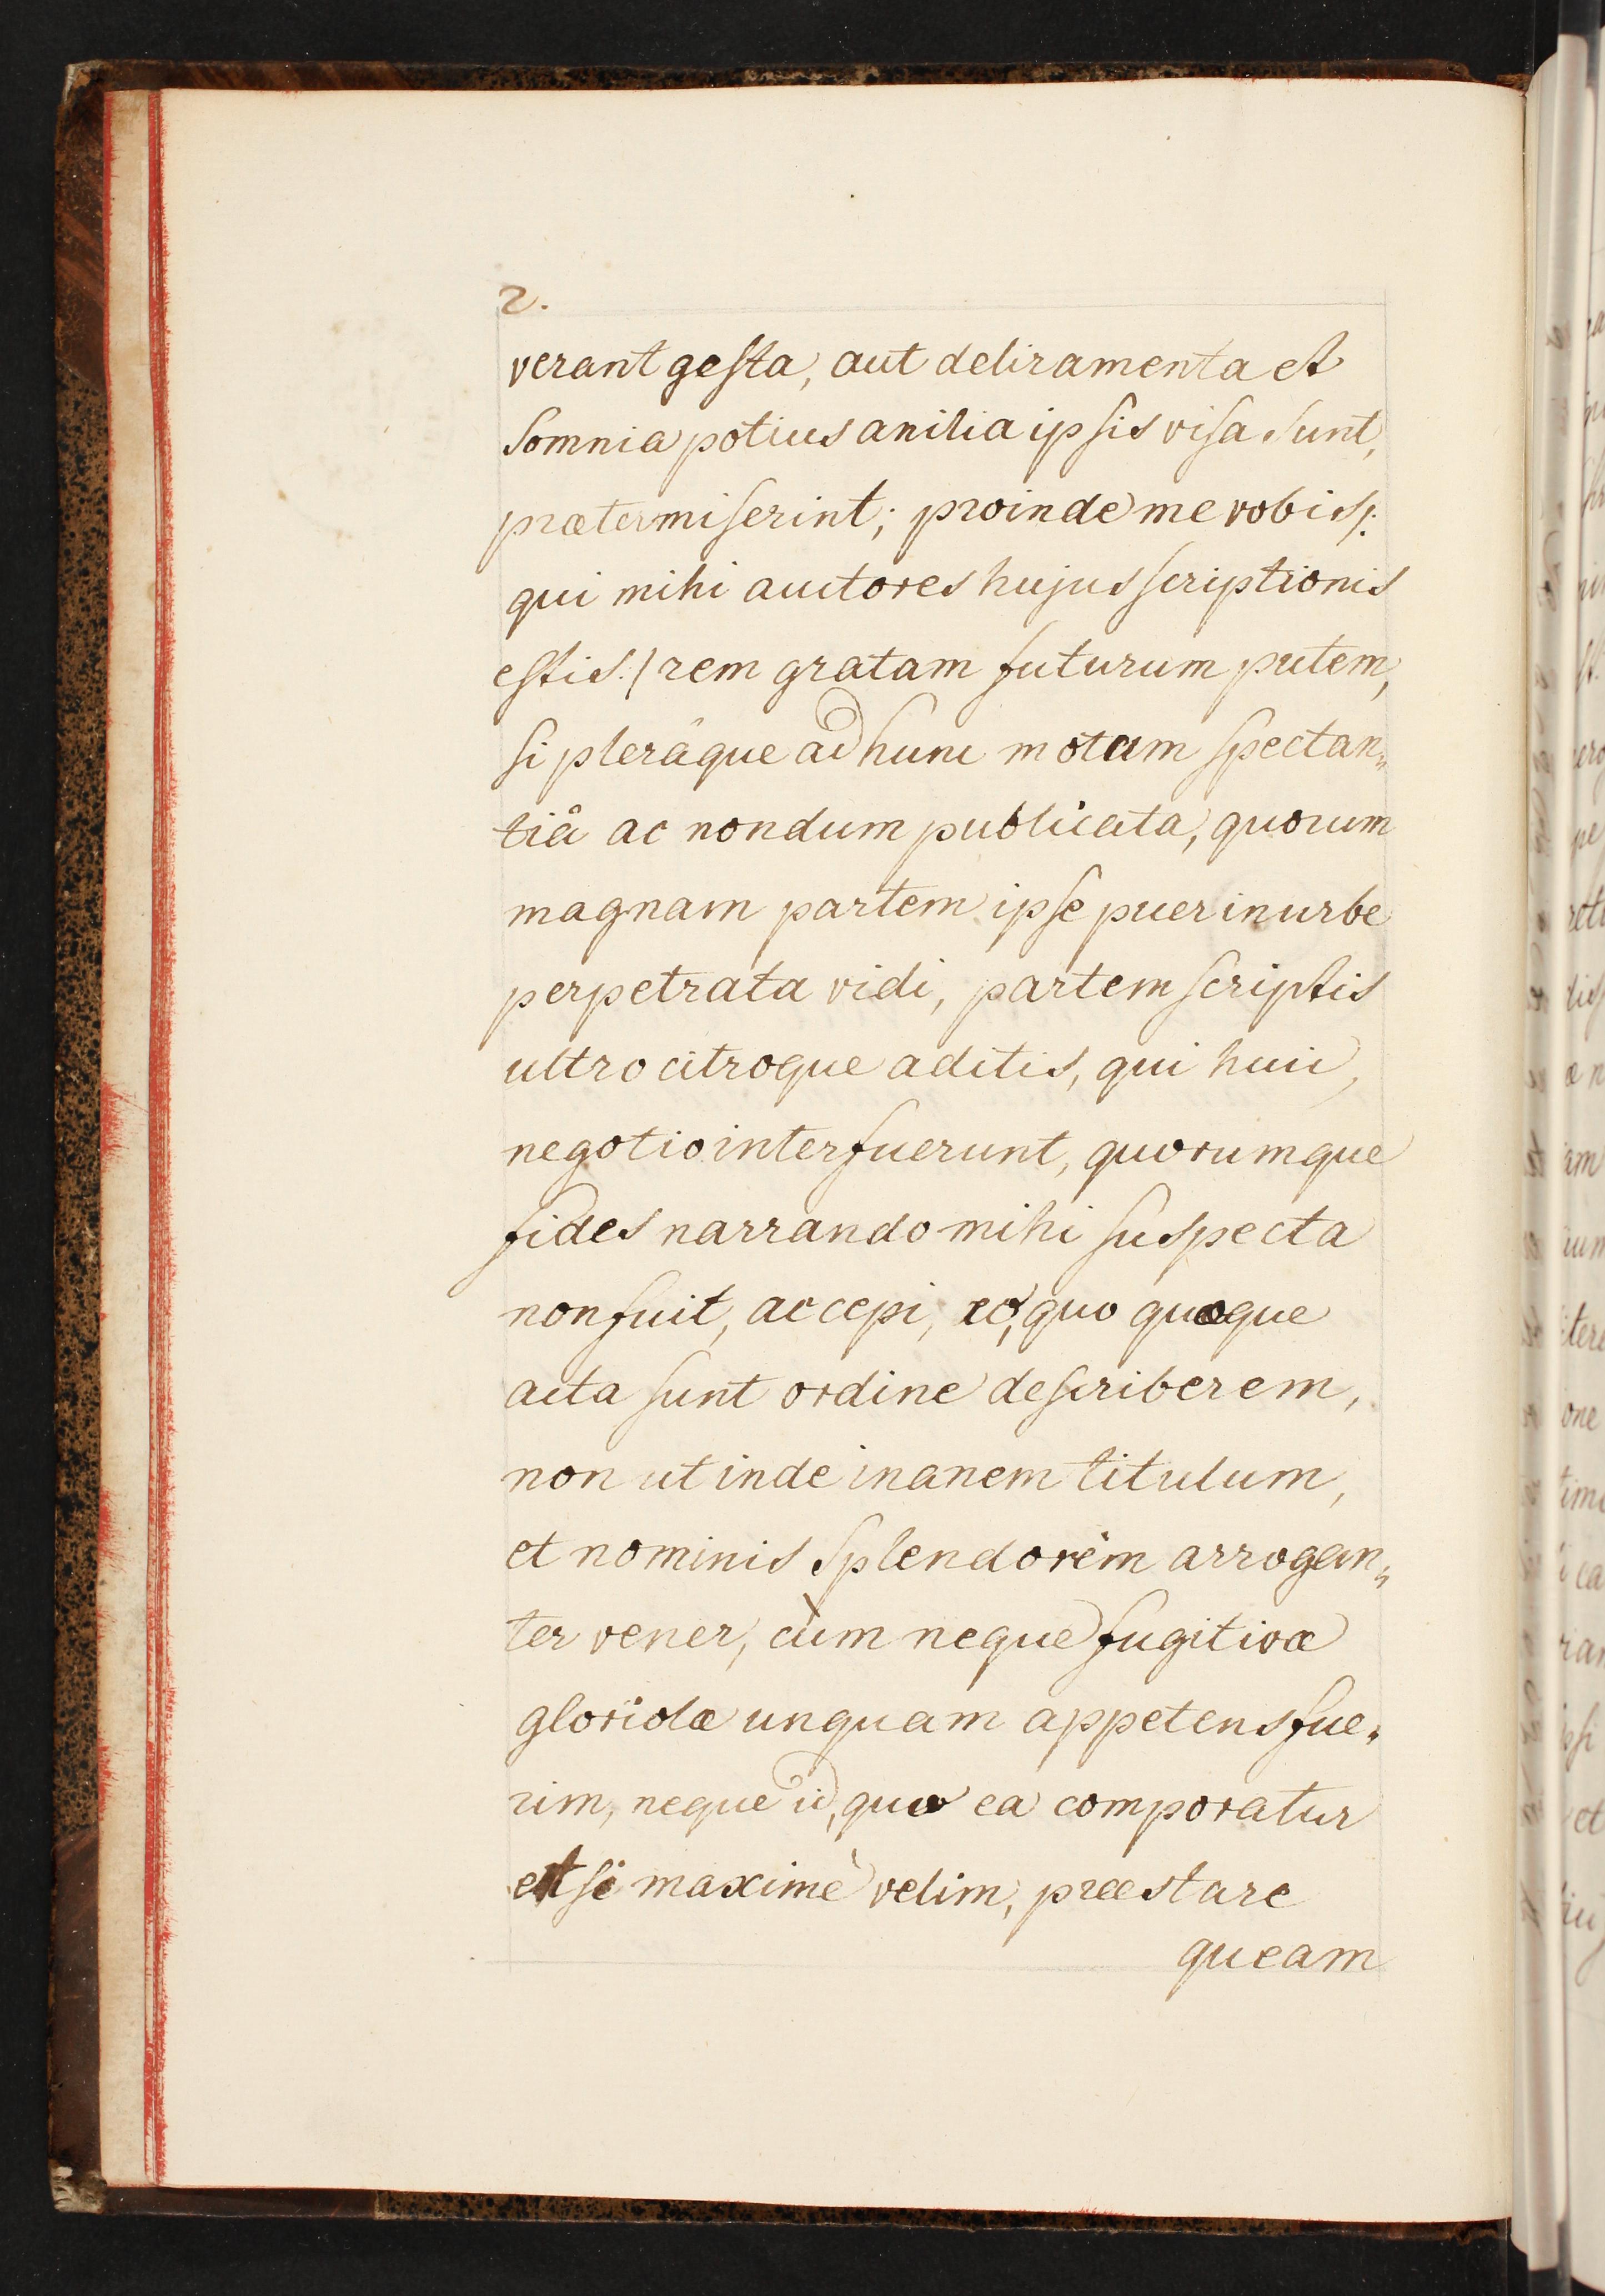 2.
verant gesta, aut deliramenta et
somnia potius anilia ipsis visa sunt,
prætermiserint; proinde me vobis /:
qui mihi auctores hujus scriptionis
estis :/ rem gratam futurum putem,
si plerâque ad hunc motum spectan„
tiâ ac nondum publicata, quorum
magnam partem ipse puer in urbe
perpetrata vidi, partem scriptis
ultro citroque aditis, qui huic
negotio interfuerunt, quorumque
fides narrando mihi suspecta
non fuit, accepi, eo, quo quæque
acta sunt ordine describerem,
non ut inde inanem titulum,
et nominis splendorem arrogan„
ter vener, cùm neque fugitivæ
gloriolæ unquam appetens fue„
rim, neque id, quo ea comporatur
etsi maximè velim, præstare
queam